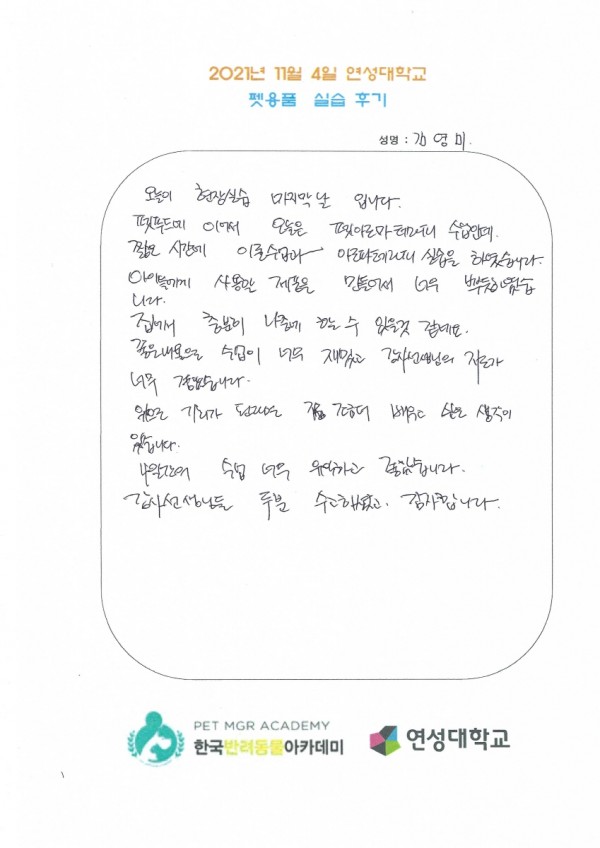 2021년 11월 4일 연성대학교
펫용품 실습 후기
성명 : 김영미.
오늘이 현장실습 마지막날 입니다.
펫푸드에 이어서 오늘은 펫아로마테라피 수업인데.
짧은 시간에 이론수업과 아로마테라피 실습을 하였습니다.
아이들에게 사용한 제품을 만들어서 너무 뿌듯하였습
니다.
집에서 충분히 나중에 할 수 있을것 같네요.
좋은내용으로 수업이 너무 재밌고 강사선생님의 지도가
너무 좋았습니다.
기회가 된다면 좀더 배우고 싶은 생각이
있습니다.
4일간의 수업 너무 유익하고 즐거웠습니다.
강사선생님들 두분 수고하셨고. 감사합니다.
PET MGR ACADEMY
한국반려동물아카데미
연성대학교